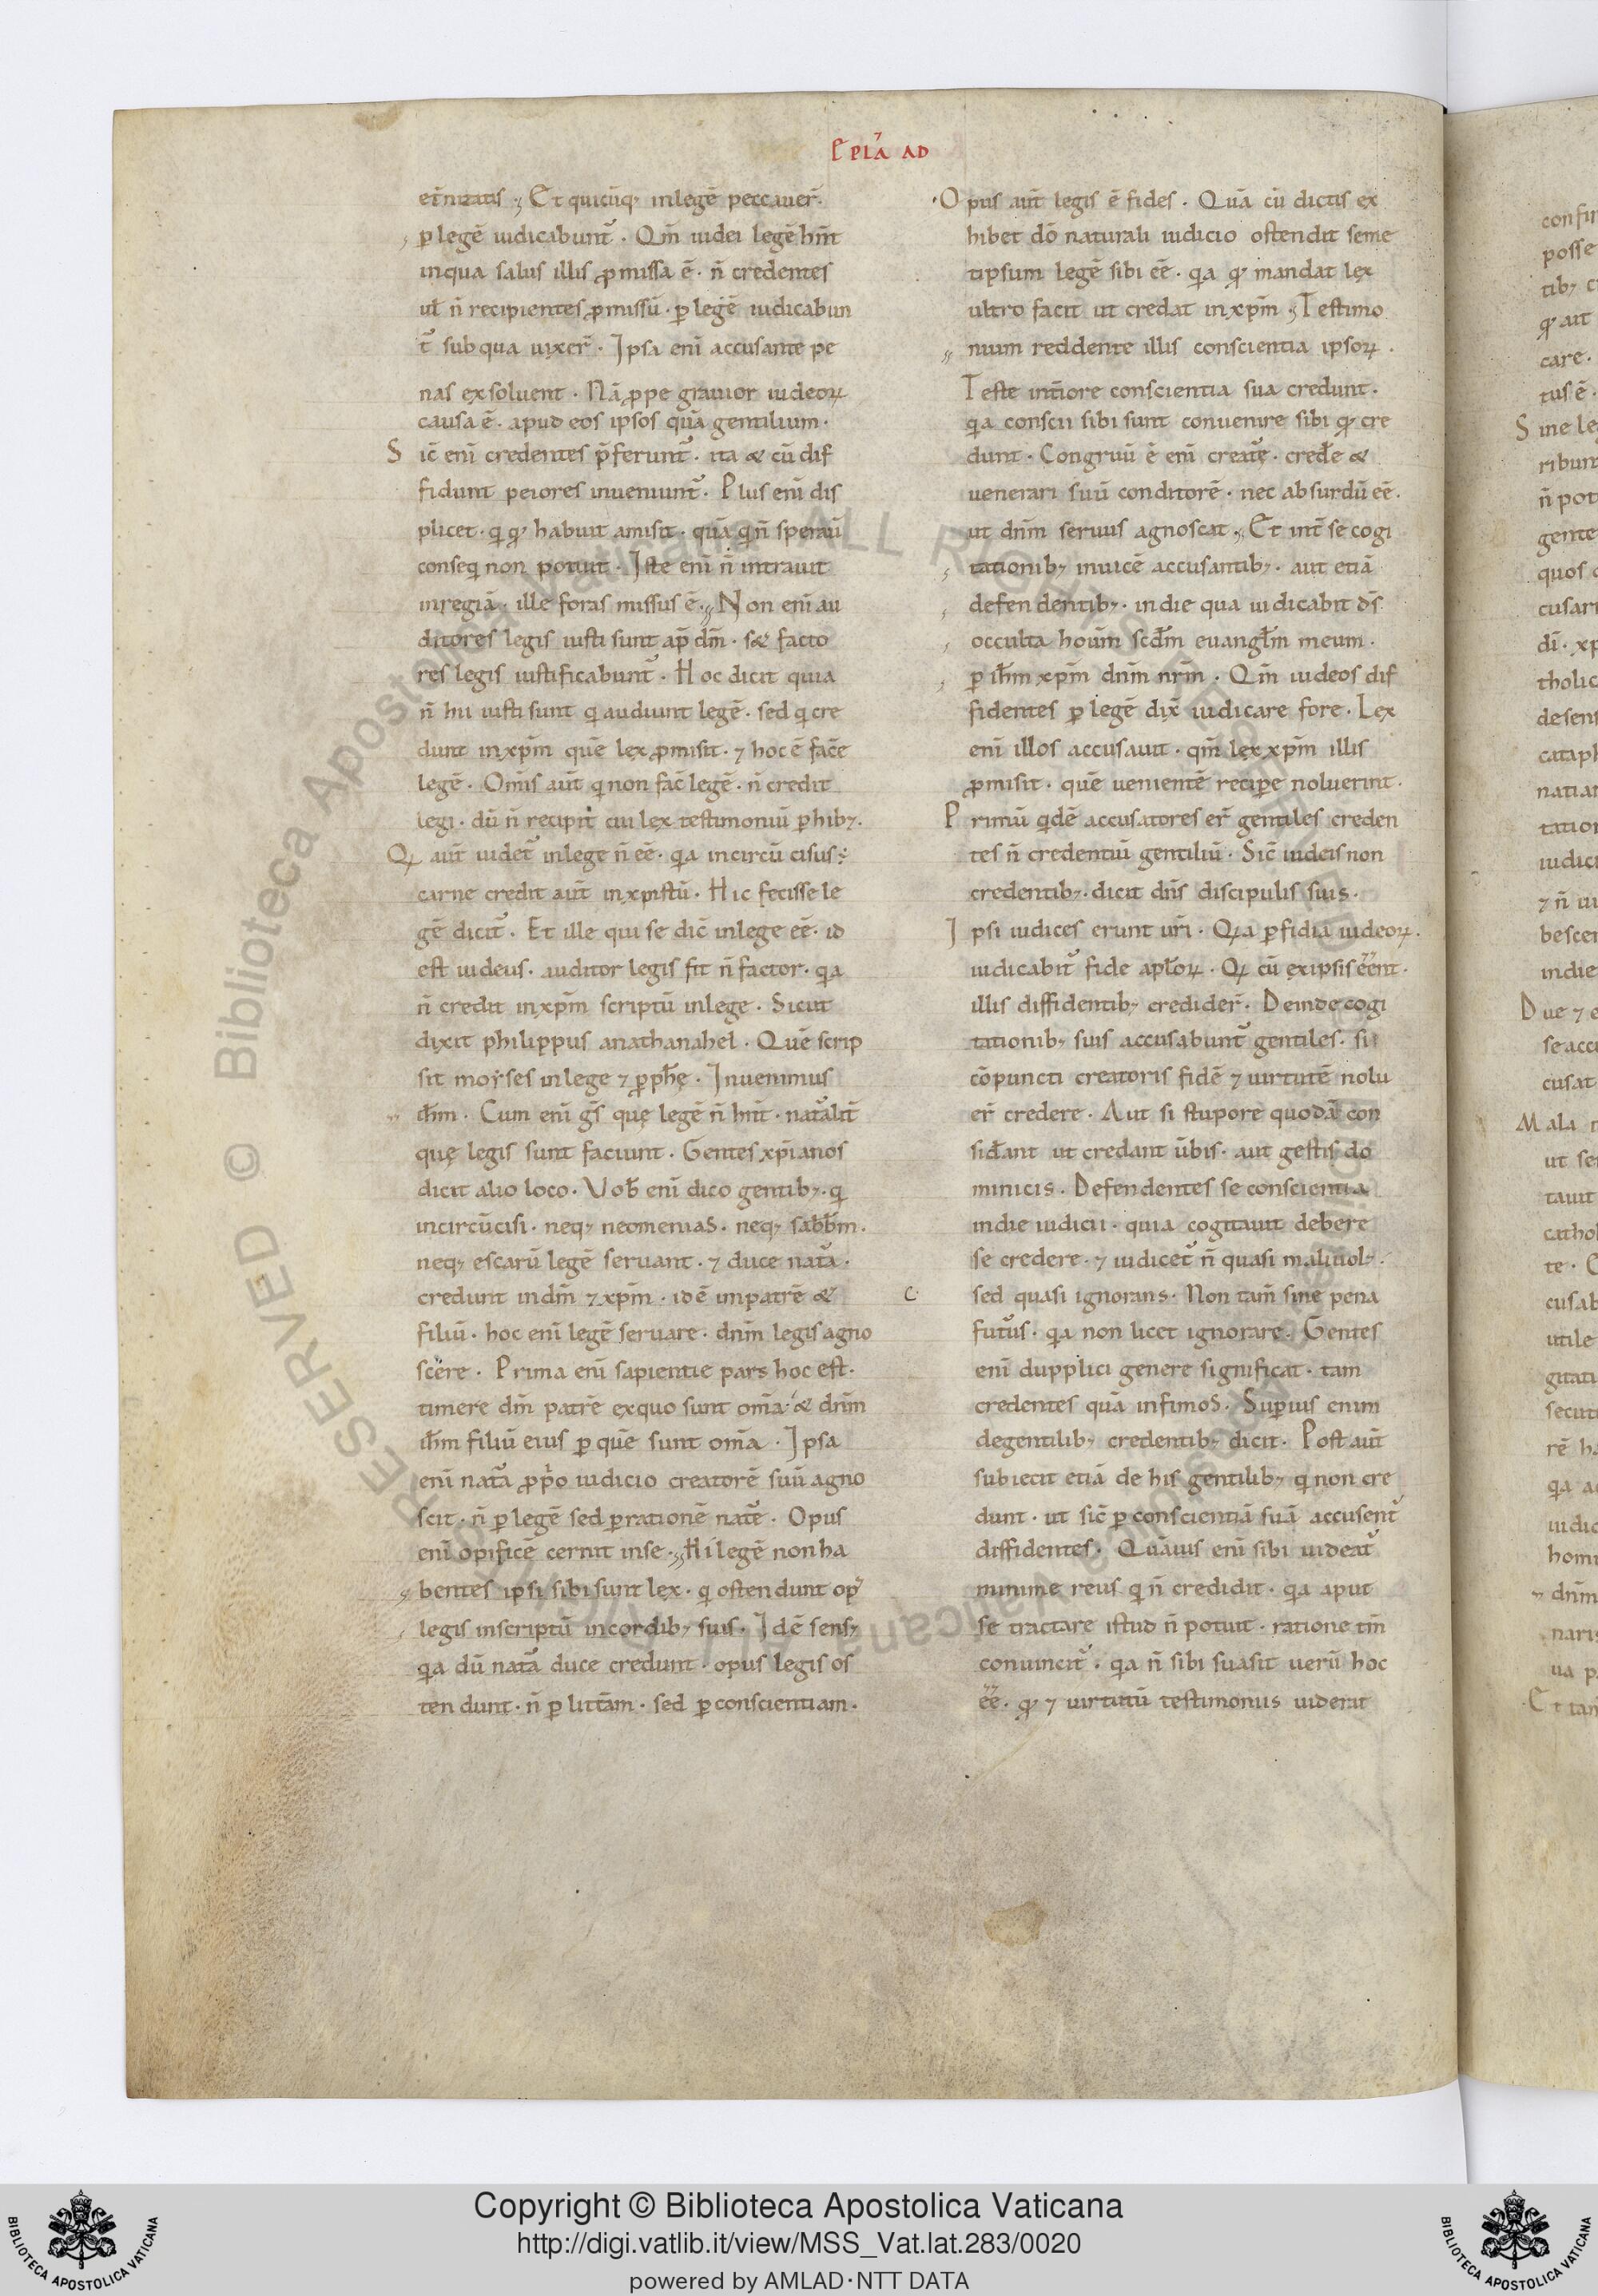 EPLA AD
et̄nitatis ; Et quicūq; inlegē peccauer̄.
p̱ legē iudicabunt᷑ . Qm̄ iudei legē hn̄t
inqua salus illis ꝓmissa ē . n̄ credentes
uł n̄ recipientes ꝓmissū . p̱ legē iudicabun
t᷑ subqua uixer̄ . Ipsa enī accusante pe
nas exsoluent . Nā ꝓpe grauior iudeoꝝ
causa ē . apud eos ipsos quā gentilium .
Sic̄ enī credentes p̄ferunt᷑ . ita & cū dif
fidunt peiores inueniunt᷑ . Plus enī dis
plicet . qi qđ habuit amisit . quā qi n̄ sperau
conseqi non potuit . Iste enī n̄ intrauit
inregiā . ille foras missus ē . Non enī au
ditores legis iusti sunt ap̄ dm̄ . s& facto
res legis iustificabunt᷑ . Hoc dicit quia
n̄ hii iusti sunt qi audiunt legē . sed qi cre
dunt inxp̄m quē lex ꝓmisit . ⁊ hoc ē fac̄e
legē . Om̄is aūt qi non fac̄ legē . n̄ credit
legi . dū n̄ recipit cui lex testimoniū ꝑhib;.
Qi aūt uidet᷑ inlege n̄ ēē . qa incircū cisus
carne credit aūt inxpistū . Hic fecisse le
gē dicit᷑ . Et ille qui se dic̄ inlege ēē . id
est iudeus . auditor legis fit n̄ factor . qa
n̄ credit inxp̄m scriptū inlege . Sicut
dixit philippus anathanahel . Quē scrip
sit moyses inlege ⁊ ꝓph̄ę . Inuenimus
ih̄m . Cum enī gs̄ quę legē n̄ hn̄t . nat᷑alit̄
quę legis sunt faciunt . Gentes xp̄ianos
dicit alio loco . Vob̄ enī dico gentib; . qi
incircūcisi . neq; neomenias . neq; sabb̄m .
neq; escarū legē seruant . ⁊ duce nat᷑a .
credunt indm̄ ⁊ xp̄m . idē inpatrē &
filiū . hoc enī legē seruare . dnm̄ legis agno
scere . Prima enī sapientie pars hoc est .
timere dm̄ patrē exquo sunt om̄a . & dnm̄
ih̄m filiū eius p̱ quē sunt om̄a . Ipsa
enī nat᷑a ꝓpo iudicio creatorē suū agno
scit . n̄ p̱ legē sed p̱rationē nat᷑e . Opus
enī opificē cernit inse . Hi legē non ha
bentes ipsi sibi sunt lex . qi ostendunt op᷒
legis inscriptū incordib; suis . Idē sens;
qa dū nat᷑a duce credunt . opus legis os
tendunt . n̄ p̱ litt̄am . sed p̱conscientiam .
Opus aūt legis ē fides . Quā cū dictis ex
hibet dō naturali iudicio ostendit seme
tipsum legē sibi ēē . qa qđ mandat lex
ultro facit ut credat inxp̄m ; Testimo
nium reddente illis conscientia ipsoꝝ .
Teste int̄iore conscientia sua credunt .
qa conscii sibi sunt conuenire sibi qđ cre
dunt . Congruū ē enī creat᷑ę . cređe &
uenerari suū conditorē . nec absurdū ēē .
ut dnm̄ seruus agnoscat . Et int̄ se cogi
tationib; inuicē accusantib; . aut etiā
defendentib; . indie qua iudicabit ds̄
occulta houm̄ scđm euanglm̄ meum .
p̱ ih̄m xp̄m dnm̄ nr̄m . Qm̄ iudeos dif
fidentes p̱ legē dix̄ iudicare fore . Lex
enī illos accusauit . qm̄ lex xp̄m illis
ꝓmisit . quē uenientē recipe noluerint .
Primū qidē accusatores er̄ gentiles creden
tes n̄ credentiū gentiliū . Sic̄ iudeis non
credentib; . dicit dn̄s discipulis suis .
Ipsi iudices erunt ur̄i . Qia ꝑfidia iudeoꝝ .
iudicabit᷑ fide apłoꝝ . Qi cū exipsis ēēnt .
illis diffidentib; credider̄ . Deinde cogi
tationib; suis accusabunt᷑ gentiles . si
cōpuncti creatoris fidē ⁊ uirtutē nolu
er̄ credere . Aut si stupore quodā con
siđant ut credant ūbis . aut gestis do
minicis . Defendentes se conscientia
indie iudicii . quia cogitauit debere
se credere . ⁊ iudicet᷑ n̄ quasi maliuol; .
sed quasi ignorans . Non tam̄ sine pena
fut᷑us . qa non licet ignorare . Gentes
enī dupplici genere significat . tam
credentes quā infimos . Superius enim
degentilib; credentib; dicit . Post aūt
subiecit etiā de his gentilib; qi non cre
dunt . ut sic̄ p̱ conscientiā suā accusent᷑
diffidentes . Quāuis enī sibi uideat᷑
minime reus qi n̄ credidit . qa aput
se tractare istud n̄ potuit . ratione tm̄
conuincit᷑ . qa n̄ sibi suasit uerū hoc
ēē . qđ ⁊ uirtutū testimoniis uiderat
Copyright © Biblioteca Apostolica Vaticana
http://digi.vatlib.it/view/MSS_Vat.lat.283/0020
powered by AMLAD·NTT DATA
BIBLIOTECA APOSTOLICA VATICANA
BIBLIOTECA APOSTOLICA VATICANA